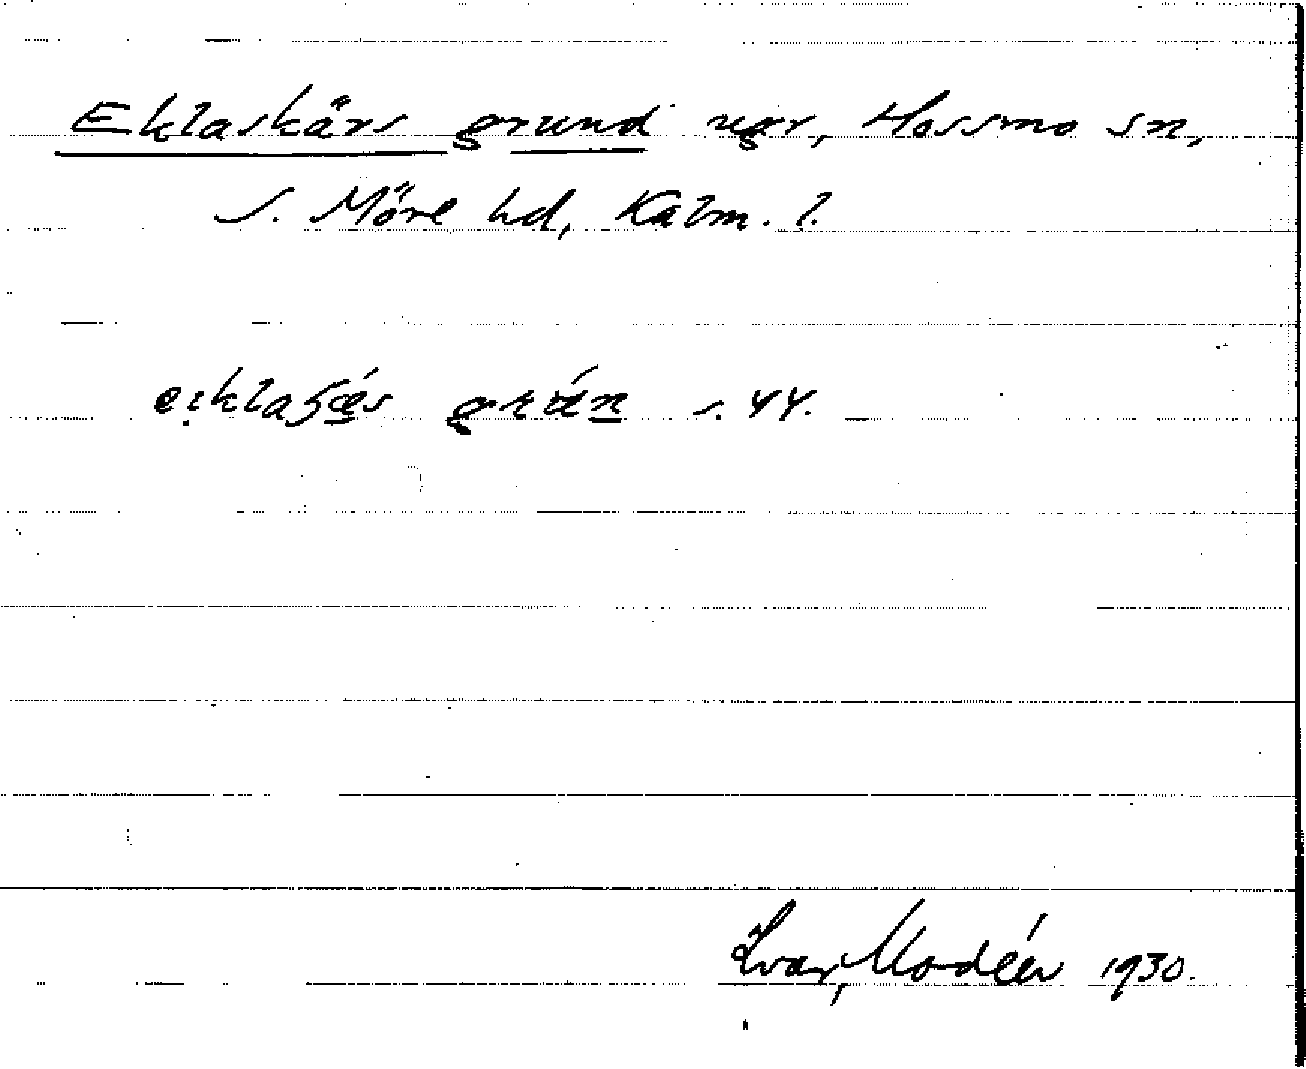 Eklaskärs grund ugr, Hossmo sn,
S. Möre hd, Kalm. l.
s. 44.
Ivar Modéer 1930.